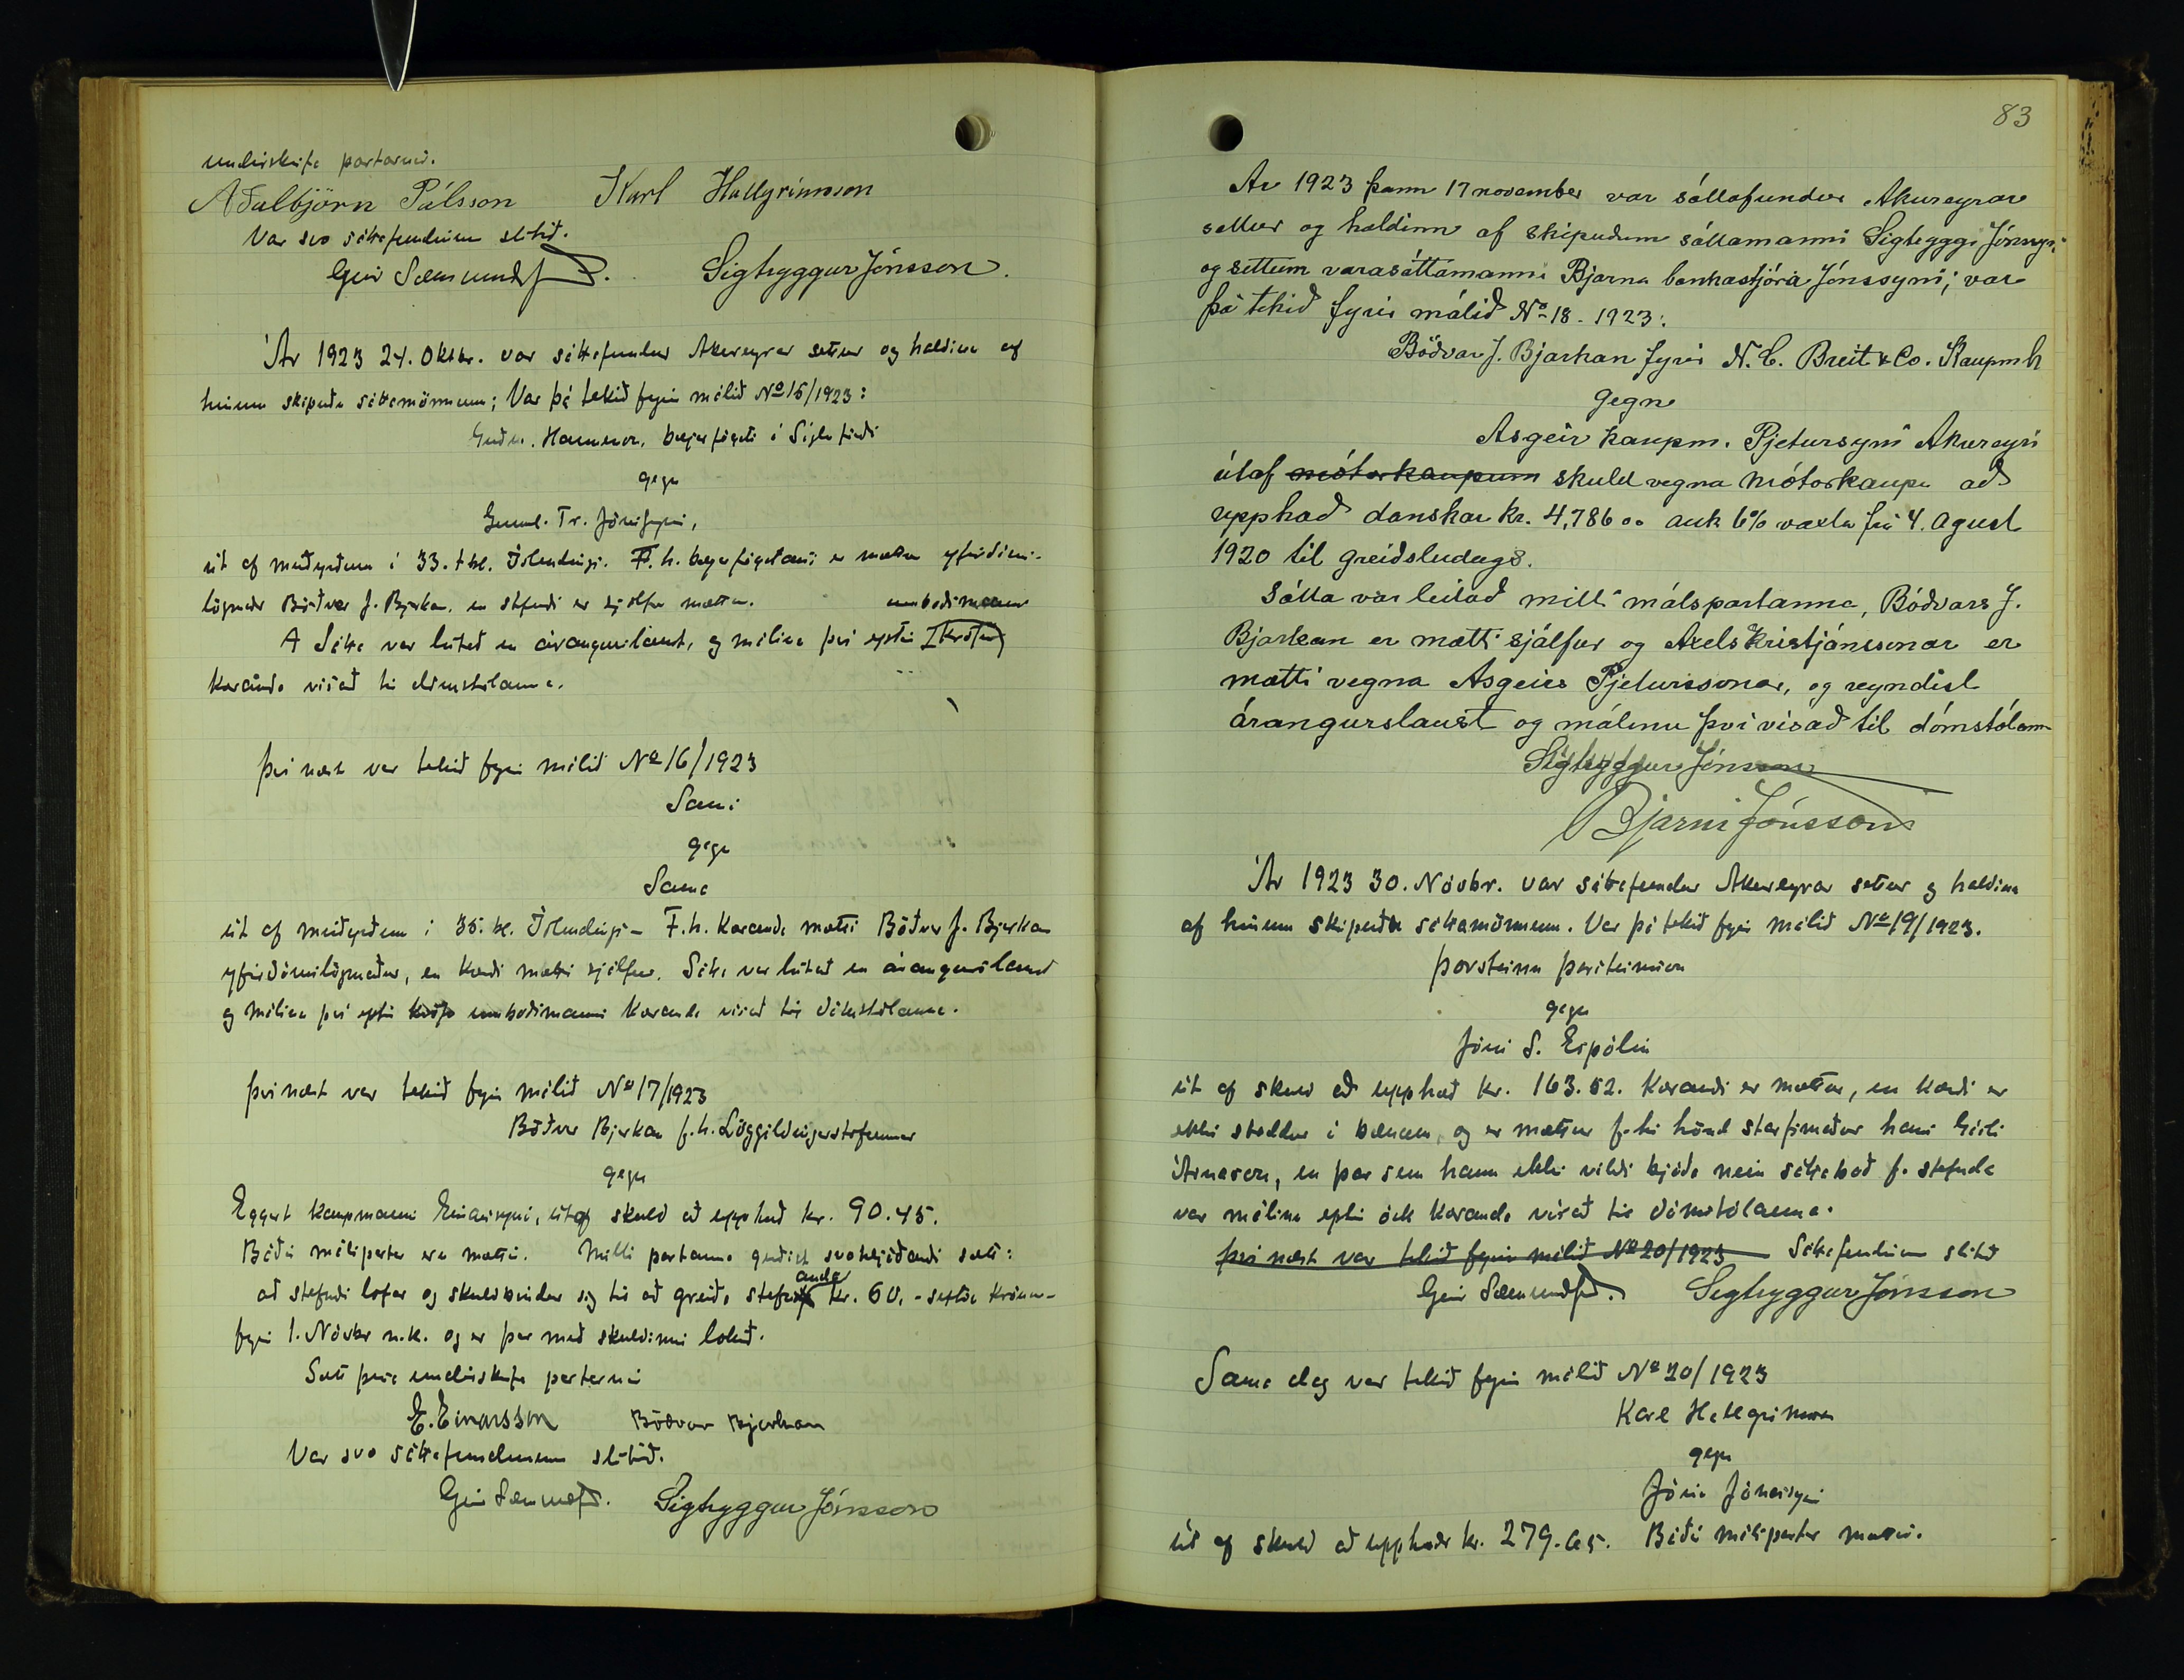 undirskrifa partarnir.
Aðalbjörn Pálsson Karl Hallgrímsson
Var svo sáttafundinum slitið.
Geir Sæmundss. Sigtryggur Jónsson.
Ár 1923 24. Oktbr. var sáttafundur Akureyrar settur og haldinn af
hinum skipuðu sáttamönnum; Var þá tekið fyrir málið No 15/1923:
Guðm. Hannesson, bæjarfógeti í Siglufirði
gegn
Gunnl. Tr. Jónssyni,
út af meiðyrðum í 33. tbl. Íslendings. F. h. bæjarfógetans er mættur yfirdóms-
lögmaðr Böðvar J. Bjarkan, en stefndi er sjálfur mættur. umboðsmanns
Á Sátt var leitað en árangurslaust, og málinu því eptir kröfu
kæranda vísað til dómstólanna.
því næst var tekið fyrir málið No 16/1923
Sami
gegn
Sama
út af meiðyrðum í 35. bl. Íslendings - F. h. kæranda mætti Böðvar J. Bjarkan
yfirdómslögmaður, en kærði mætti sjálfur. Sátt var leitað en árangurslaust
og málinu því eptir kröfu umboðsmanns kæranda vísað til dómstólanna.
því næst var tekið fyrir málið No 17/1923
Böðvar Bjarkan f. h. Löggildingarstofunnar
gegn
Eggert kaupmanni Einarssyni, útaf skuld að upphæð kr. 90.45.
Báðir málspartar eru mættir. Milli partanna gerðist svohljóðandi sætt:
anda
að stefndi lofar og skuldbindur sig til að greiða stefn kr. 60.- sextíu krónur-
fyrir 1. Nóvbr n.k. og er þar með skuldinni lokið.
Sætt þessa undirskrifa partarnir
E. Einarsson Böðvar Bjarkan
Var svo sáttafundinum slitið.
Geir Sæmundss. Sigtryggur Jónsson
83
Ár 1923 þann 17 november var sáttafundur Akureyrar
settur og haldinn af skipuðum sáttamanni Sigtryggi Jónssyni
og settum varasáttamanni Bjarna bankastjóra Jónssyni; var
þá tekið fyrir málið No 18 - 1923:
Böðvar J. Bjarkan fyrir N. C. Breit & Co. Kaupmh
gegn
Asgeir kaupm. Pjeturssyni Akureyri
útaf mótorkaupum skuld vegna mótorkaupa að
upphæð danskar kr. 4,786 oo auk 6% vaxta frá 4. Agust
1920 til greiðsludags.
Sátta var leitað milli málspartanna, Böðvars J.
Bjarkan er mætti sjálfur og Axels Kristjánssonar er
mætti vegna Asgeirs Pjeturssonar, og reyndist
árangurslaust og málinu því vísað til dómstólanna
Sigtryggur Jónsson
Bjarni Jónsson
Ár 1923 30. Nóvbr. var sáttafundur Akureyrar settur og haldinn
af hinum skipuðu sáttamönnum. Var þá tekið fyrir málið No 19/1923.
Þorsteinn Þorsteinsson
gegn
Jóni S. Espólín
út af skuld að upphæð kr. 163.52. Kærandi er mættur, en kærði er
ekki staddur í bænum, og er mættur f. hans hönd starfsmaður hans Gísli
Árnason, en þar sem hann ekki vildi bjóða nein sáttaboð f. stefnda
var málinu eptir ósk kæranda vísað til dómstólanna.
því næst var tekið fyrir málið No 20/1923 Sáttafundinum slitið
Geir Sæmundss. Sigtryggur Jónsson
Sama dag var tekið fyrir málið No 20/1923
Karl Hallgrímsson
gegn
Jóni Jónssyni
út af skuld að upphæð kr. 279.65. Báðir málspartar mættir.